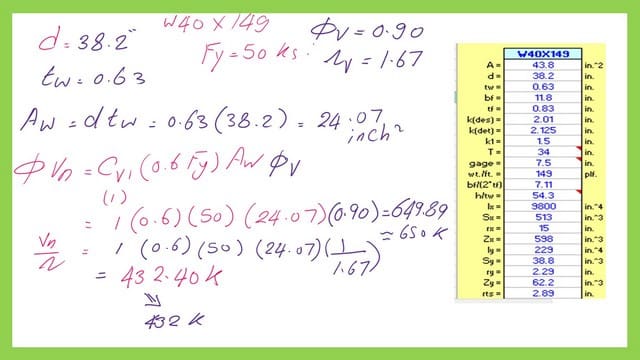 W40 X 149
d = 38.2"
Fy = 50 ksi
ΦV = 0.90
ΩV = 1.67
tw = 0.63
Aw = d tw = 0.63 (38.2) = 24.07 inch²
Φ Vn = CV1 (0.6 Fy) Aw ΦV
(1)
= 1 (0.6) (50) (24.07) (0.90) = 649.89
≈ 650 K
Vn/Ω = 1 (0.6) (50) (24.07) (1/1.67)
= 432.40 K
432 K
W40X149
A = 43.8 in.^2
d = 38.2 in.
tw = 0.63 in.
bf = 11.8 in.
tf = 0.83 in.
k(des) = 2.01 in.
k(det) = 2.125 in.
k1 = 1.5 in.
T = 34 in.
gage = 7.5 in.
wt./ft. = 149 plf.
bf/(2*tf) = 7.11
h/tw = 54.3
Ix = 9800 in.^4
Sx = 513 in.^3
rx = 15 in.
Zx = 598 in.^3
Iy = 229 in.^4
Sy = 38.8 in.^3
ry = 2.29 in.
Zy = 62.2 in.^3
rts = 2.89 in.